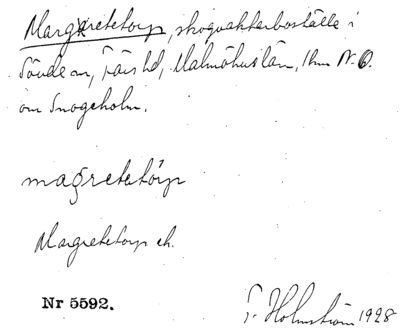 Margaretetorp, skogvaktarboställe i
Sövde sn, Färs hd, Malmöhus län, 1 km N.O.
om Snogeholm.
magretetórp
Margretetorp ek.
Nr 5592.
G. Holmström 1928